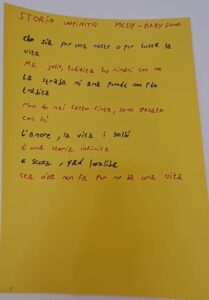 STORIA INFINITA MEDY - BABY GANG
che sia per una notte o per tutta la
vita
Ma jolie, tedesca tu rimani con me
La strada mi ama prende non l'ho
tradita
Non ho mai fatto finta, sono sposato
con lei
L'amore, la vita i soldi
È una storia infinita
e scusa,
sta vita non fa per me la una vita